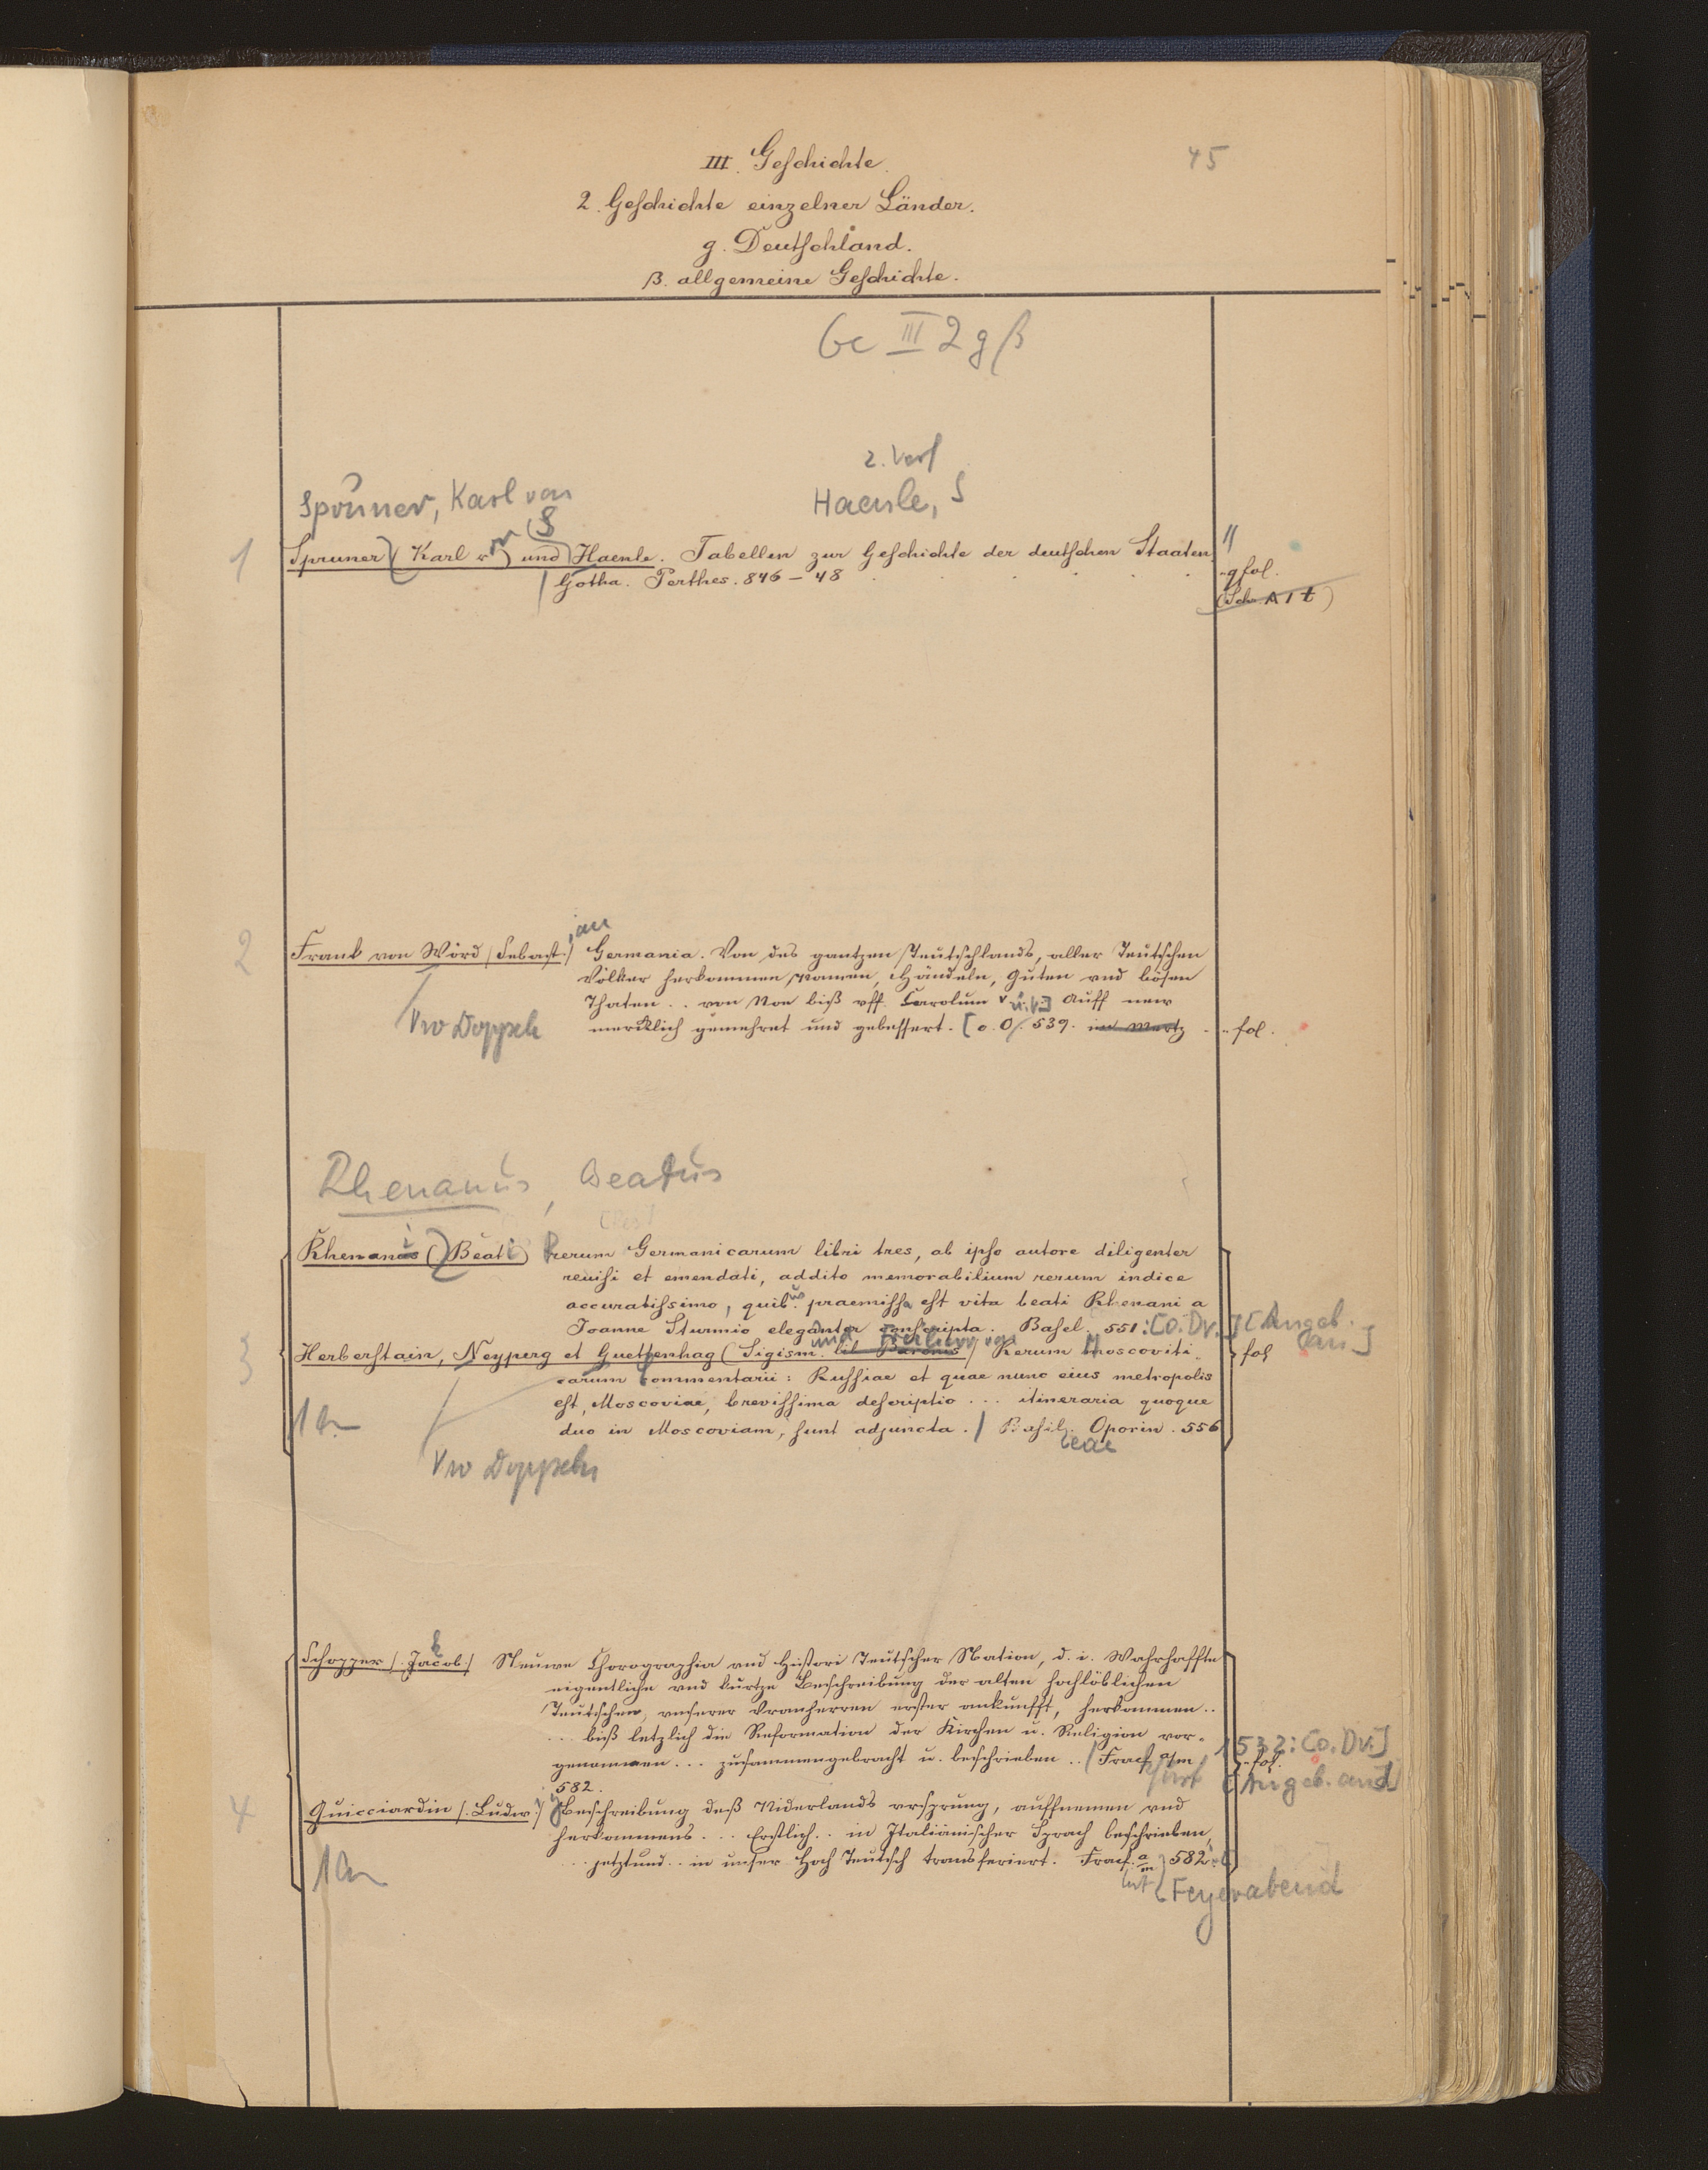 III. Geschichte.
45
2. Geschichte einzelner Länder.
g. Deutschland.
β. allgemeine Geschichte.
Gc III 2 g β
2. Verf
Spruner, Karl von
Haenle, S
1
Spruner (Karl v.) und Haenle. Tabellen zur Geschichte der deutschen Staaten
Gotha. Perthes. 846–48
gfol.
2
Frank von Wörd (Sebast.) Germania. Von des gantzen Teutschlands, aller Teutschen
ian
Völker herkommen, Namen, Händeln, Guten vnd bösen
Thaten .. von Noe biß vff Carolum V. Auff new
mercklich gemehret und gebessert. [o. O. 539. im Mertz
fol.
Vw Doppseln
Rhenanus, Beatus
Rhenani (Beati) rerum Germanicarum libri tres, ab ipso autore diligenter
reuisi et emendati, addito memorabilium rerum indice
accuratissimo, quib. praemissa est vita beati Rhenani a
Joanne Sturmio eleganter conscripta. Basel. 551: [o. Dr.] [Angeb.
an]
3
Herberstain, Neyperg et Guettenhag (Sigism. lib. Baronis) Rerum Moscoviti-
und Freiherr von
fol
carum commentarii: Russiae et quae nunc eius metropolis
est, Moscoviae, brevissima descriptio ... itineraria quoque
duo in Moscoviam, sunt adjuncta. Basil. Oporin. 556
leae
1 an
Vw Doppseln
Schopper (Jacob.) Neuwe Chorographia und Histori Teutscher Nation, d. i. Wahrhaffte
eigentliche vnd kurtze Beschreibung der alten hochlöblichen
Teutschen, vnserer Vranherren erster ankunfft, herkommen ..
... biß letzlich die Reformation der Kirchen u. Religion vor-
genommen ... zusammengebracht u. beschrieben .. Fracf. a/m
furt
582.
1532: [o. Dr.]
fol.
[Angeb. and
4
Guicciardin (Ludw.) Beschreibung deß Niderlands vrsprung, auffnemen vnd
herkommens ... Erstlich .. in Italiänischer Sprach beschrieben,
... jetztund .. in unser Hoch Teutsch transferiert. Fracf. a/m 582.
furt
Feyerabend
1 an